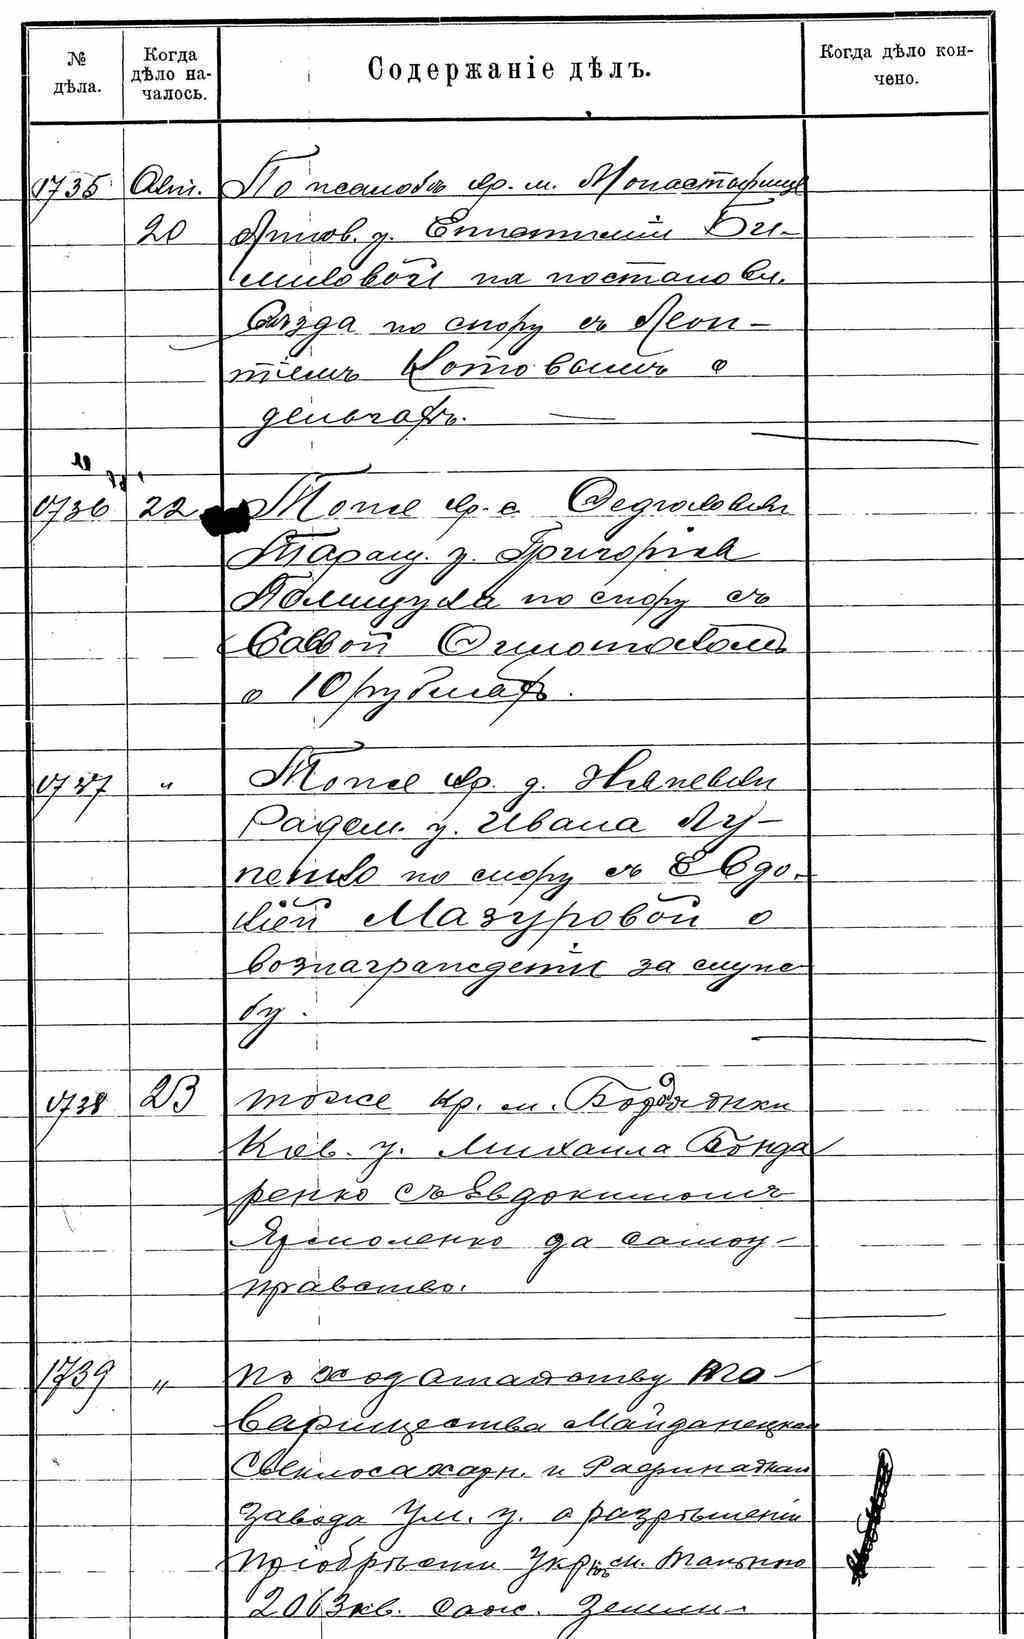 № дѣла.
Когда дѣло началось.
Содержаніе дѣлъ.
Когда дѣло кончено.
1735 Авг. 20 По жалобѣ кр. м. Монастырище
Липов. у.
миловой на постановл.
Съѣзда по спору съ Леон-
тіемъ Котовымъ о
деньгахъ.
1736 22 Тоже кр. с.
Таращ. у. Григорія
Полищука по спору съ
Саввой
о 10 рубляхъ.
1737 " Тоже кр. д.
Радом. у. Ивана Лу-
ценко по спору съ Евдо-
кіей Мазуровой о
вознагражденіи за служ-
бу.
1738 23 тоже кр. м. Бородянки
Кіев. у. Михаила Бонда
ренко съ Евдокимомъ
Ярмоленко за самоу-
правство.
1739 " по ходатайству то-
варищества Майданецкаго
Свеклосахарн. и Рафинаднаго
завода Ум. у. о разрѣшеніи
пріобрѣсти у кр-нъ м. Тального
2063 кв. саж. земли